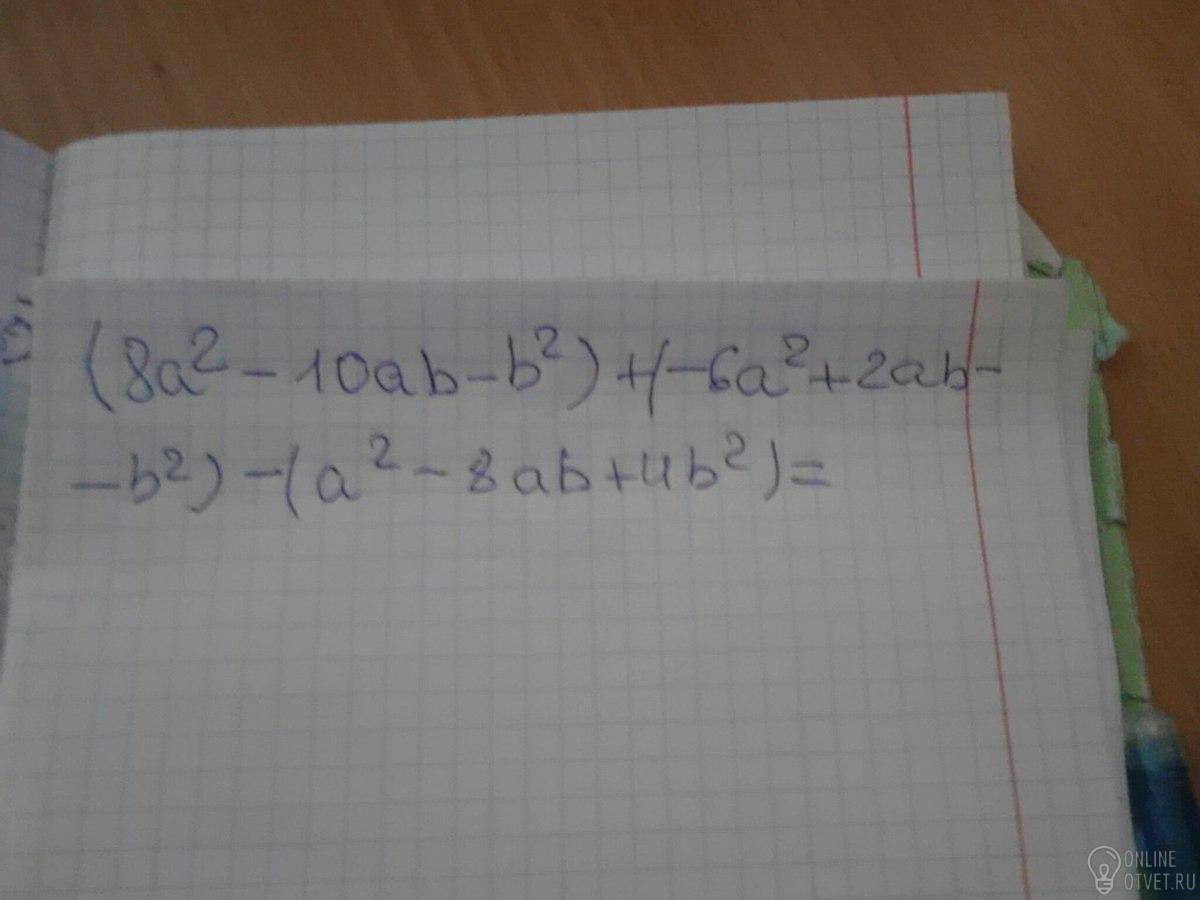 (8a² - 10ab - b²) + (-6a² + 2ab -
- b²) - (a² - 8ab + 4b²) =
ONLINE
OTVET.RU